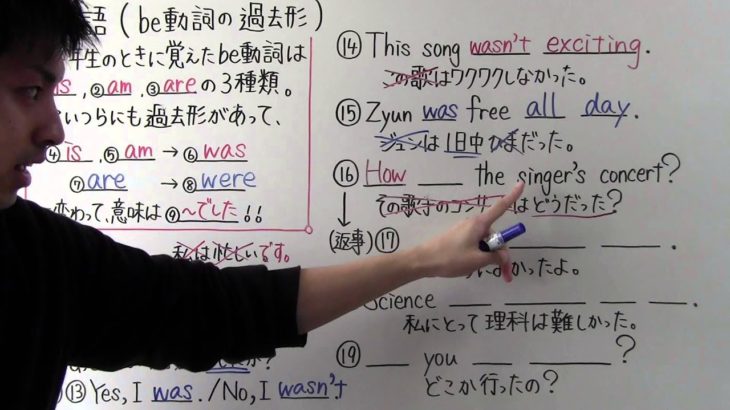 語(be動詞の過去形)
年生のときに覚えたbe動詞は
is, ②am, ③areの3種類。
いつらにも過去形があって、
④is, ⑤am → ⑥was
⑦are → ⑧were
変わって、意味は⑨〜でした!!
私は忙しいです。
⑬Yes, I was. /No, I wasn't
⑭This song wasn't exciting.
この歌はワクワクしなかった。
⑮Zyun was free all day.
ジュンは1日中ひまだった。
⑯How ____ the singer's concert?
その歌手のコンサートはどうだった?
(返事)⑰ ____ ____ .
よかったよ。
Science ____ ____ ____ ____.
私にとって理科は難しかった。
⑲____ you ____ ____?
どこか行ったの?